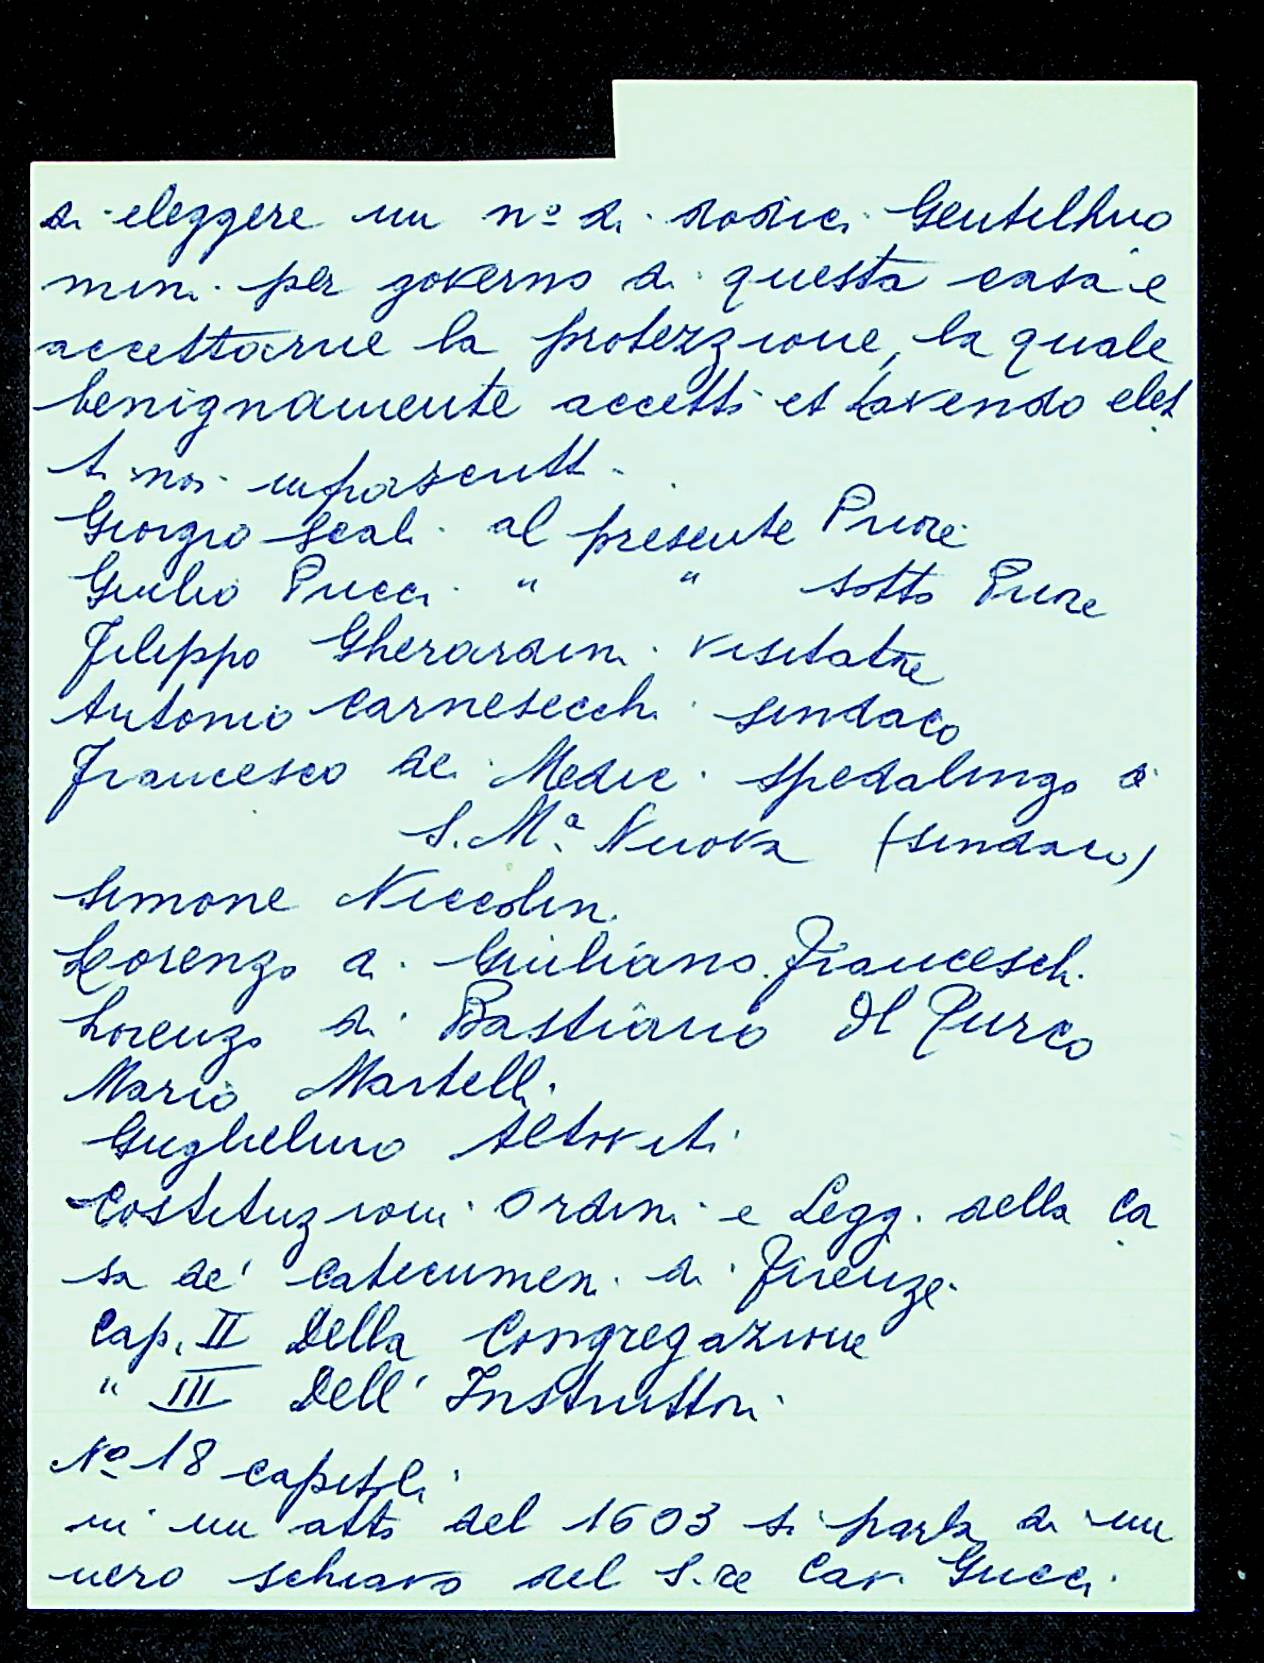 di eleggere un nº di dodici Gentilhuo
mini per governo di questa casa e
accettarne la protezzione, la quale
benignamente accettò et havendo elet
ti noi infrascritti
Giorgio Scali al presente Priore
Giulio Pucci " " sotto Priore
Filippo Gherardini visitatore
Antonio Carnesecchi sindaco
Francesco de Medici spedalingo di
S. Mª Nuova (sindaco)
Simone Niccolini
Lorenzo di Giuliano Franceschi
Lorenzo di Bastiano Del Turco
Mario Martelli
Guglielmo Altoviti
Costituzioni Ordini e Leggi della Ca
sa de' Catecumeni di Firenze
Cap. II Della Congregazione
" III Dell' Instruttori
Nº 18 capitoli
in un atto del 1603 si parla di un
nero schiavo del S.re Cav. Gucci